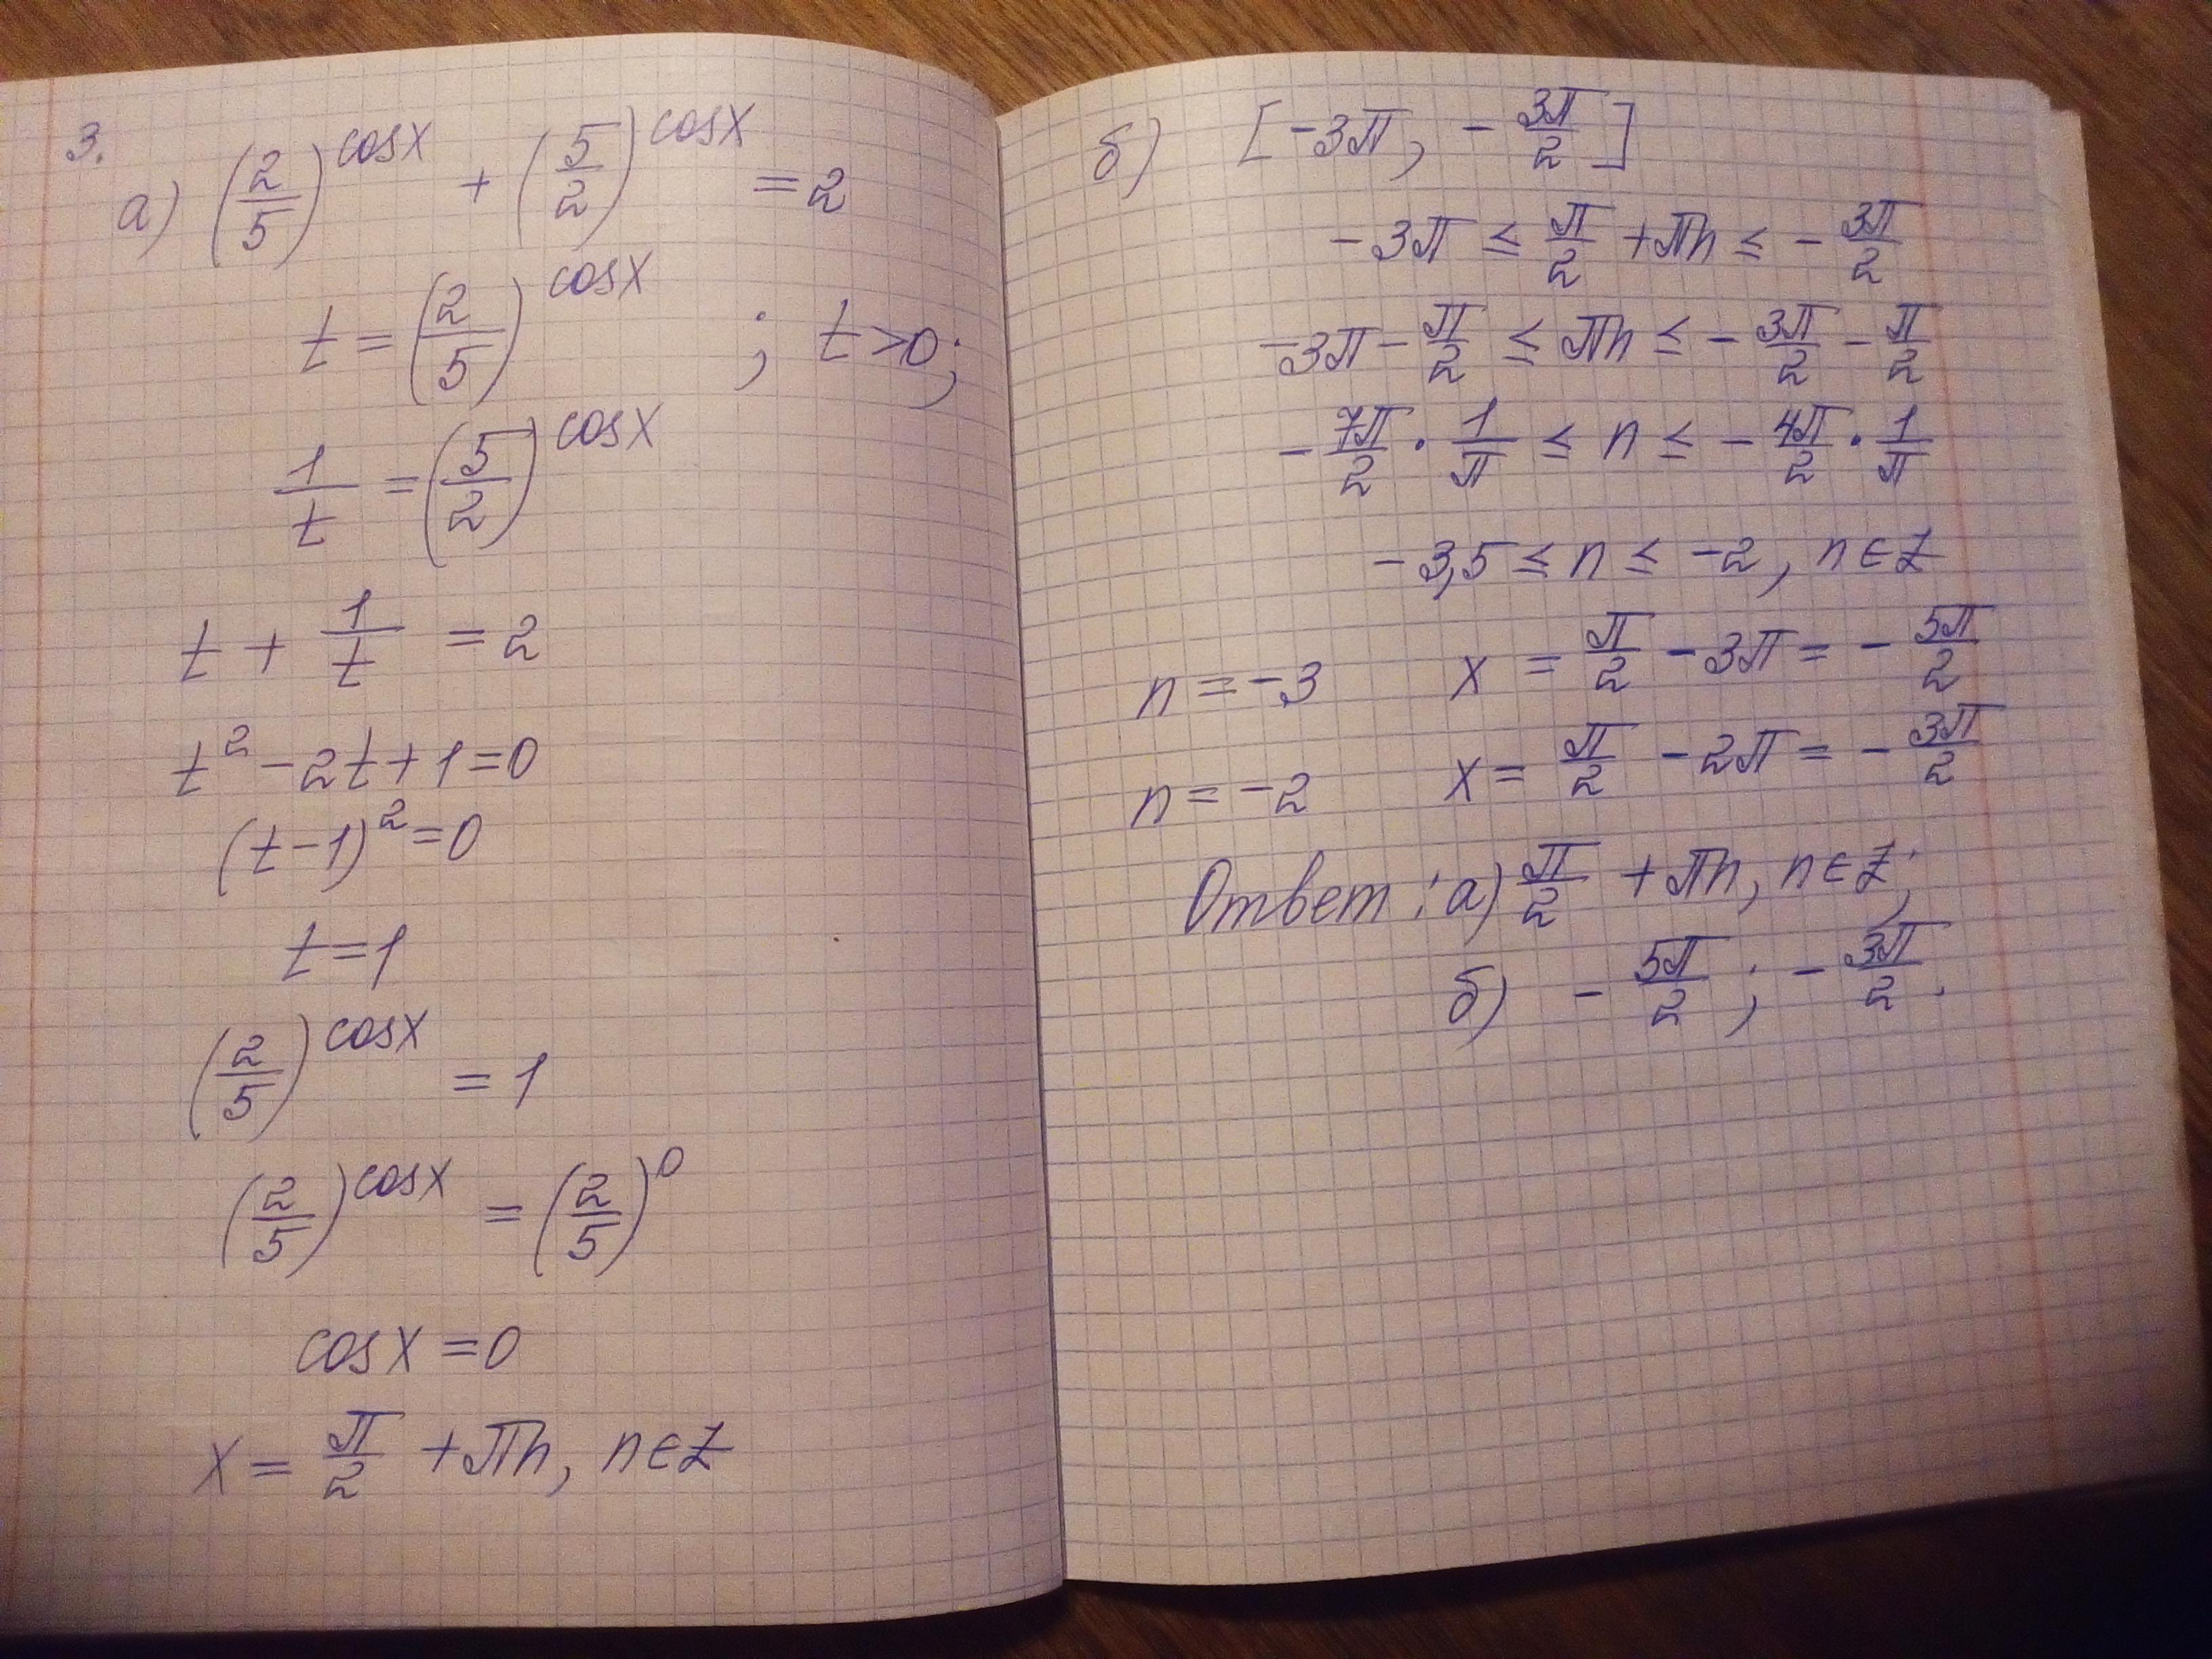 3.
а) (2/5)^cosx + (5/2)^cosx = 2
t = (2/5)^cosx ; t>0;
1/t = (5/2)^cosx
t + 1/t = 2
t² - 2t + 1 = 0
(t-1)² = 0
t = 1
(2/5)^cosx = 1
(2/5)^cosx = (2/5)^0
cosx = 0
x = π/2 + πn, n∈Z
б) [-3π, -3π/2]
-3π ≤ π/2 + πn ≤ -3π/2
-3π - π/2 ≤ πn ≤ -3π/2 - π/2
-7π/2 · 1/π ≤ n ≤ -4π/2 · 1/π
-3,5 ≤ n ≤ -2, n∈Z
n = -3 x = π/2 - 3π = -5π/2
n = -2 x = π/2 - 2π = -3π/2
Ответ: а) π/2 + πn, n∈Z;
б) -5π/2; -3π/2.